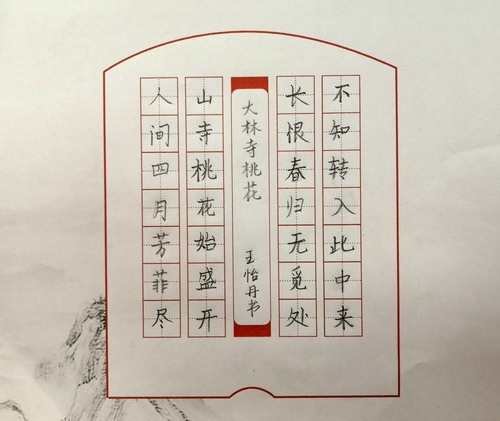 人间四月芳菲尽
山寺桃花始盛开
大林寺桃花 王怡丹书
长恨春归无觅处
不知转入此中来